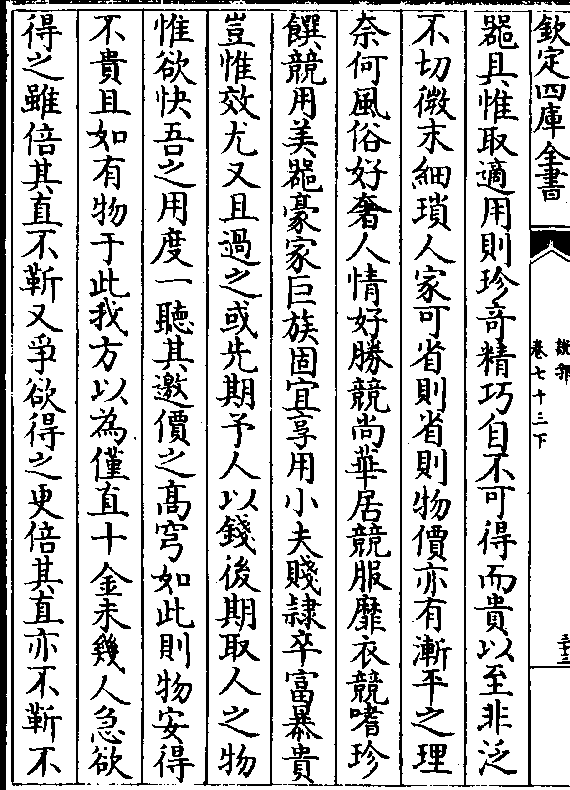 欽定四庫全書
說郛
卷七十三下
三十三
器具惟取適用則珍奇精巧自不可得而貴以至非泛
不切微末細瑣人家可省則省則物價亦有漸平之理
奈何風俗好奢人情好勝競尚華居競服靡衣競嗜珍
饌競用美器豪家巨族固宜享用小夫賤隸卒富暴貴
豈惟效尤又且過之或先期予人以錢後期取人之物
惟欲快吾之用度一聽其邀價之髙穹如此則物安得
不貴且如有物于此我方以為僅直十金未幾人急欲
得之雖倍其直不靳又爭欲得之更倍其直亦不靳不